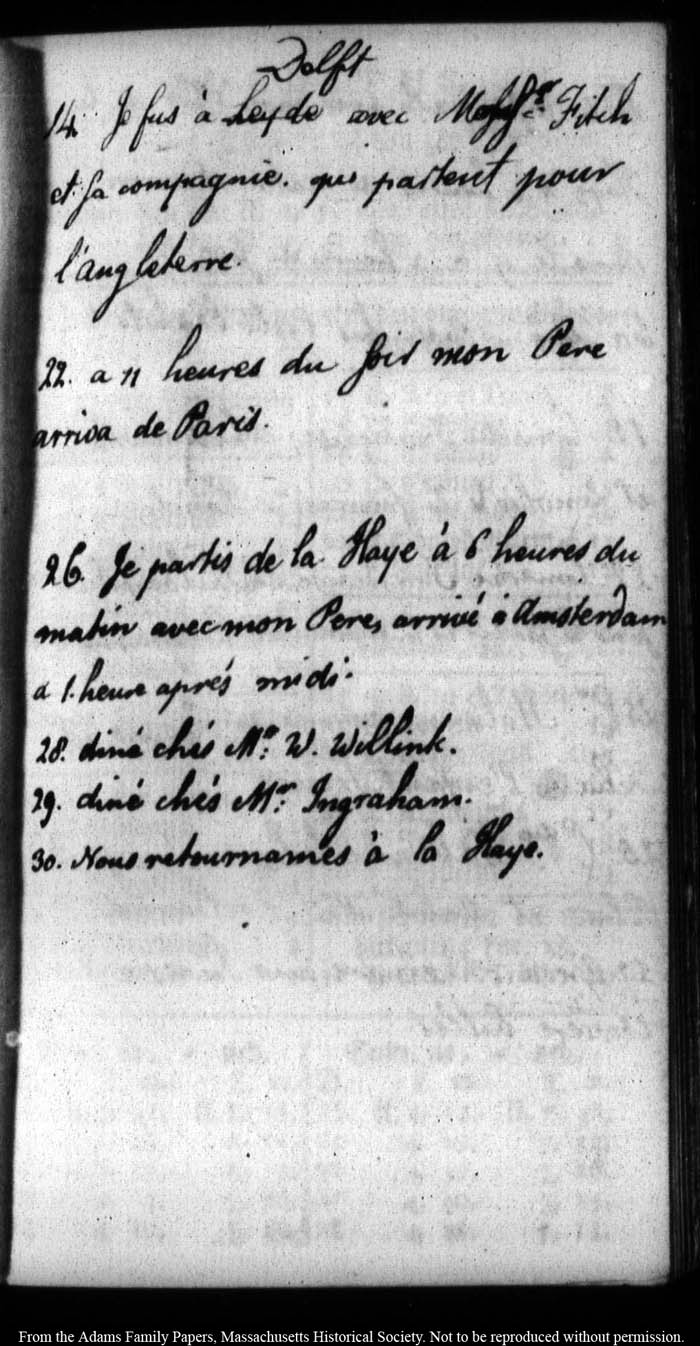 Delft
14. Je fus à Leyde avec Mr. Fitch
et sa compagnie. qui partent pour
l'angleterre.
22. a 11 heures du soir mon Pere
arriva de Paris.
26. Je partis de la Haye à 6 heures du
matin avec mon Pere, arrivé à Amsterdam
a 1. heure aprés midi.
28. diné chés Mr. W. Willink.
29. diné chés Mr. Ingraham.
30. Nous retournames à la Haye.
From the Adams Family Papers, Massachusetts Historical Society. Not to be reproduced without permission.